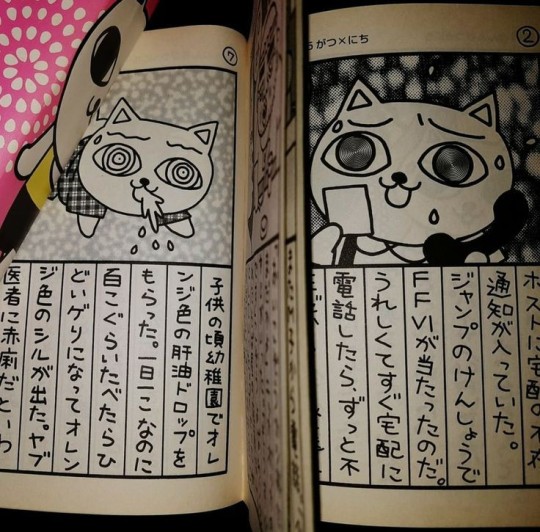 ②
がつ×にち
ポストに宅配の不在
通知が入っていた。
ジャンプのけんしょうで
FFⅥが当たったのだ。
うれしくてすぐ宅配に
電話したら、ずっと不
⑦
子供の頃幼稚園でオレ
ンジ色の肝油ドロップを
もらった。一日一こなのに
百こぐらいたべたらひ
どいゲリになってオレン
ジ色のシルが出た。ヤブ
医者に赤痢だといわ